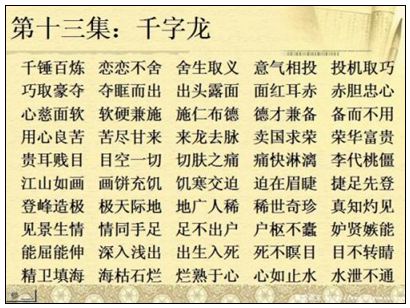 第十三集：千字龙
千锤百炼 恋恋不舍 舍生取义 意气相投 投机取巧
巧取豪夺 夺眶而出 出头露面 面红耳赤 赤胆忠心
心慈面软 软硬兼施 施仁布德 德才兼备 备而不用
用心良苦 苦尽甘来 来龙去脉 卖国求荣 荣华富贵
贵耳贱目 目空一切 切肤之痛 痛快淋漓 李代桃僵
江山如画 画饼充饥 饥寒交迫 迫在眉睫 捷足先登
登峰造极 极天际地 地广人稀 稀世奇珍 真知灼见
见景生情 情同手足 足不出户 户枢不蠹 妒贤嫉能
能屈能伸 深入浅出 出生入死 死不瞑目 目不转睛
精卫填海 海枯石烂 烂熟于心 心如止水 水泄不通